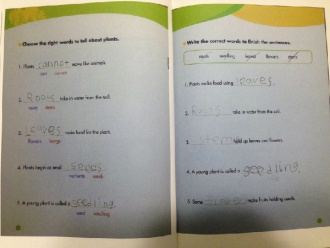 Choose the right words to tell about plants.
1. Plants cannot move like animals.
can cannot
2. Roots take in water from the soil.
roots stems
3. leaves make food for the plant.
flowers
4. Plants begin as small seeds
nutrients seeds
5. A young plant is called a seedling.
seed seedling
Write the correct words to finish the sentences.
roots seedling leaves flowers stem
1. Plants make food using leaves.
2. Roots take in water from the soil.
3. stem hold up leaves and flowers.
4. A young plant is called a seedling.
5. Some make fruits holding seeds.